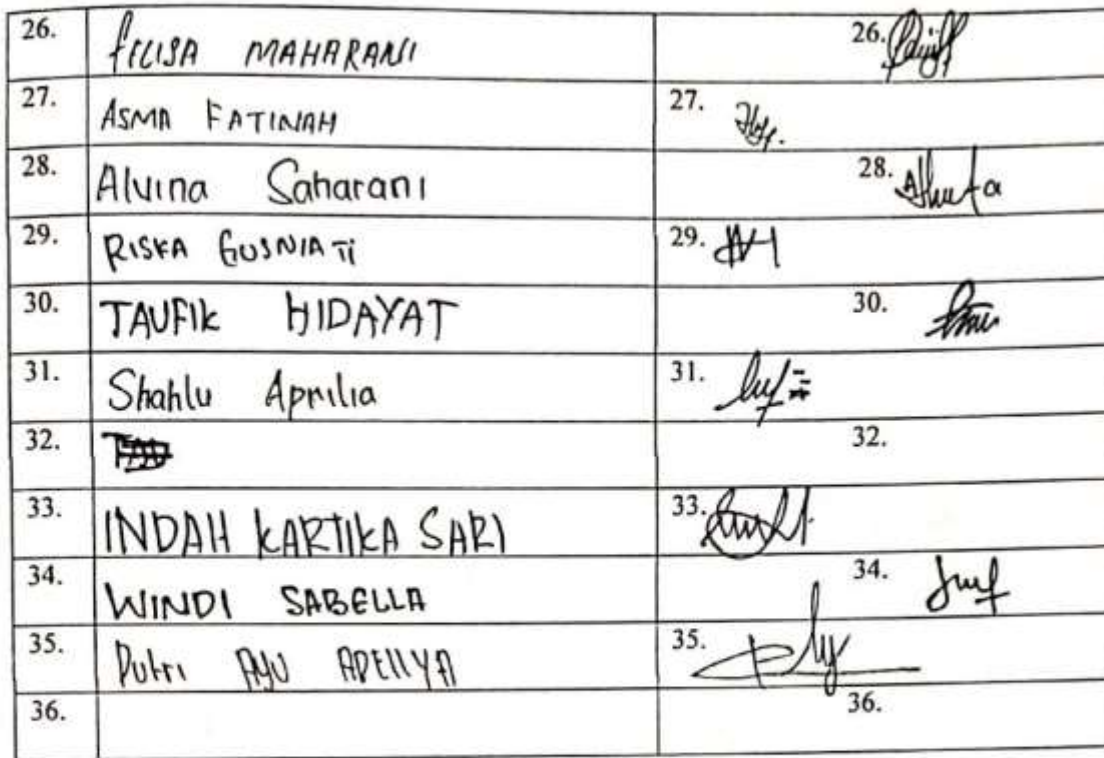 26. FELISA MAHARANI 26.
27. ASMA FATINAH 27.
28. Alvina Saharani 28.
29. RISKA GUSNIATI 29.
30. TAUFIK HIDAYAT 30.
31. Shahlu Aprilia 31.
32. 32.
33. INDAH KARTIKA SARI 33.
34. WINDI SABELLA 34.
35. Putri AYU ADELLYA 35.
36. 36.